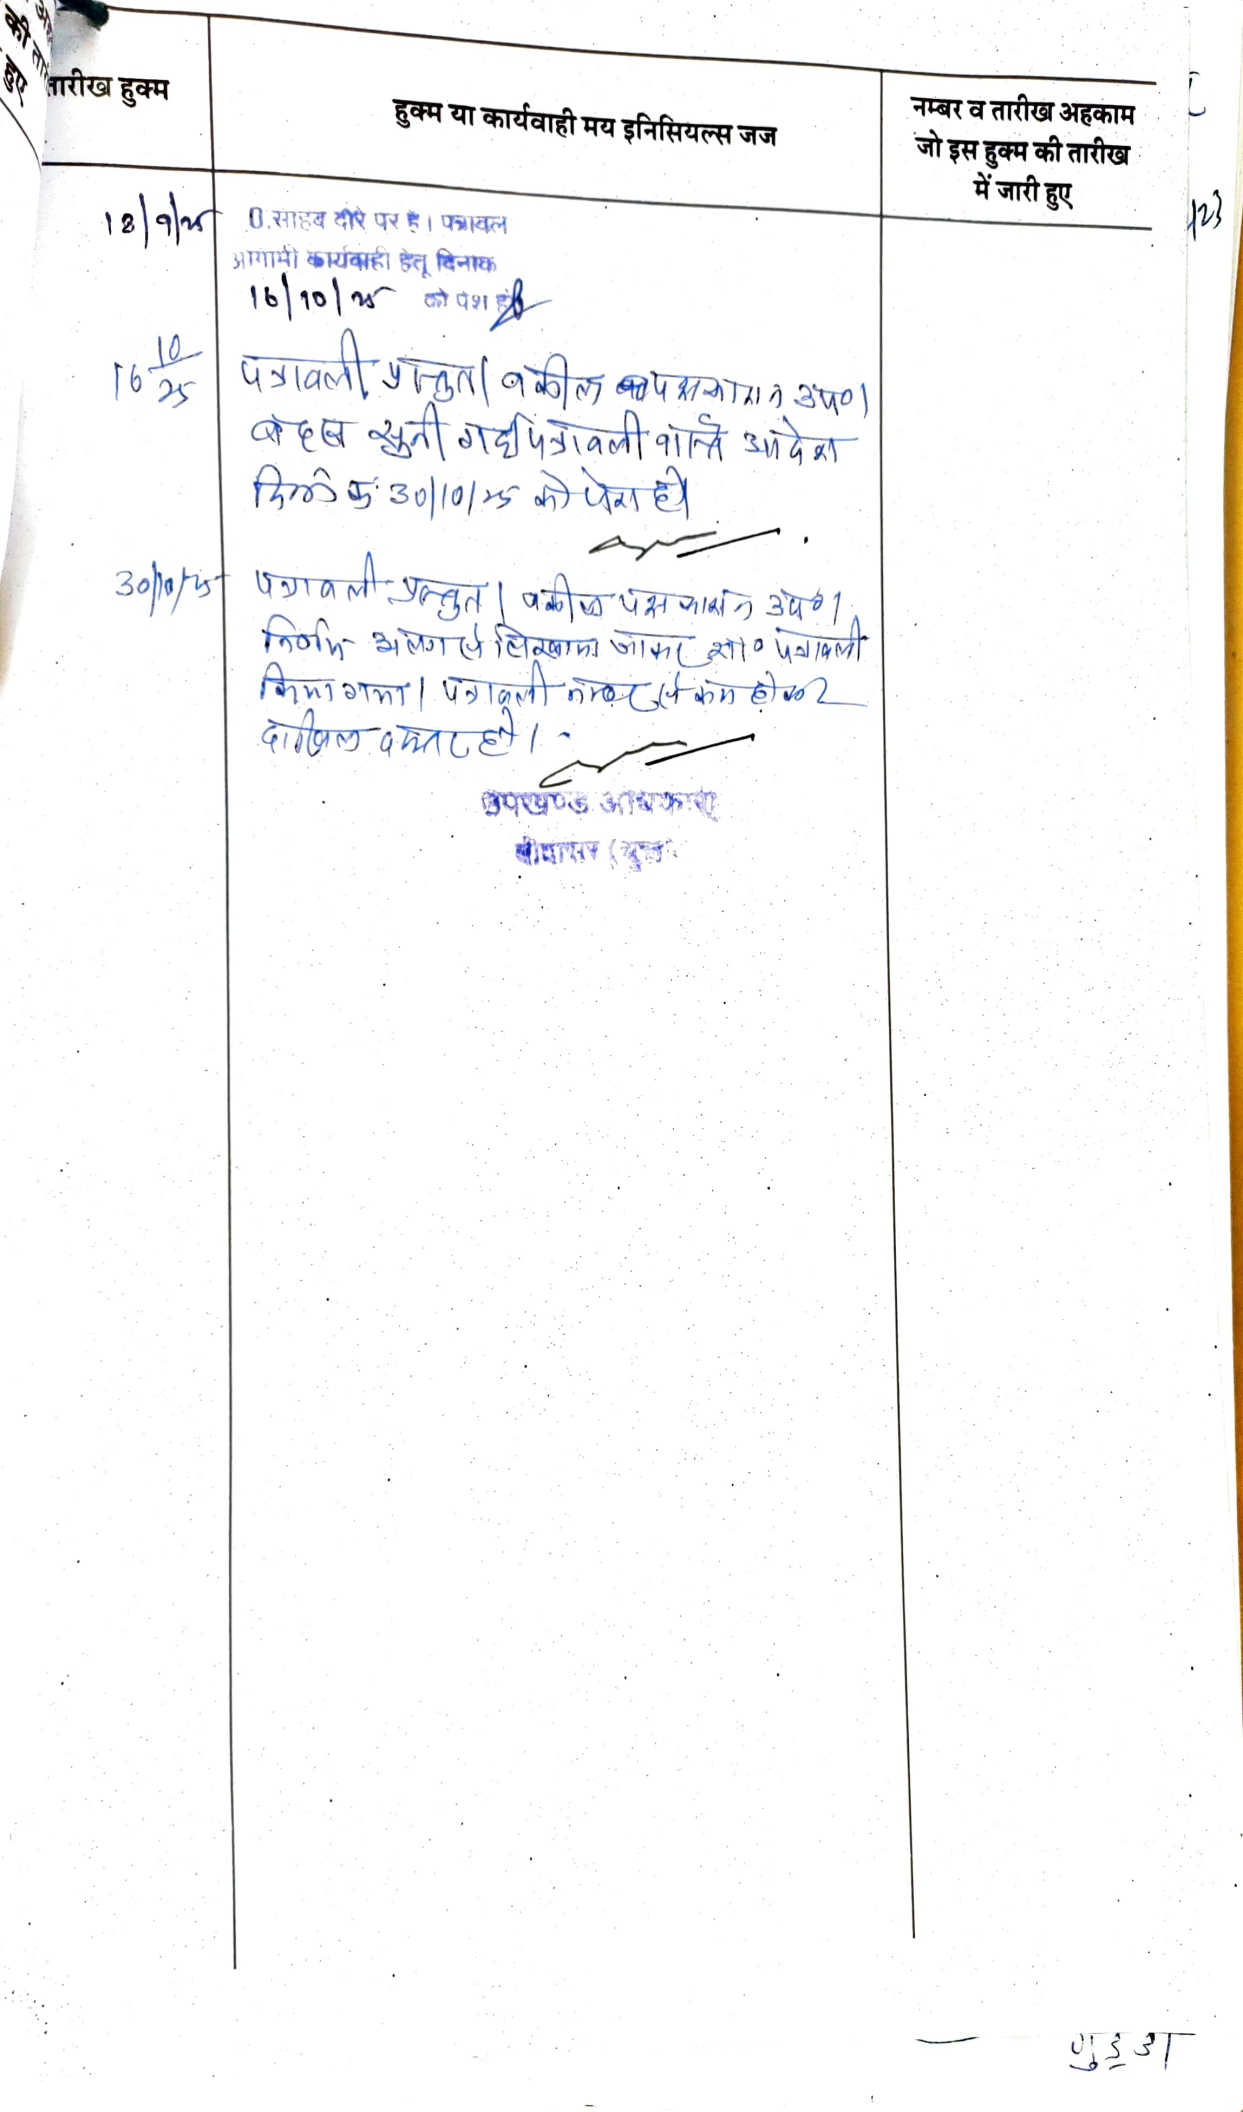 तारीख हुक्म
हुक्म या कार्यवाही मय इनिसियल्स जज
नम्बर व तारीख अहकाम
जो इस हुक्म की तारीख
में जारी हुए
18/9/25
O. साहब दौरे पर है। पत्रावल
आगामी कार्यवाही हेतू दिनांक
16/10/25 को पेश हो
16 10/25
पत्रावली प्रस्तुत। वकील पक्षकारान उप०।
बहस सुनी गई पत्रावली वास्ते आदेश
दिनांक 30/10/25 को पेश हो।
30/10/25
पत्रावली प्रस्तुत। वकील पक्षकारान उप०।
निर्णय अलग से लिखाया जाकर शा० पत्रावली
किया गया। पत्रावली नम्बर से कम होकर
दाखिल दफ्तर हो।
उपखण्ड अधिकारी
बीदासर (चूरू)